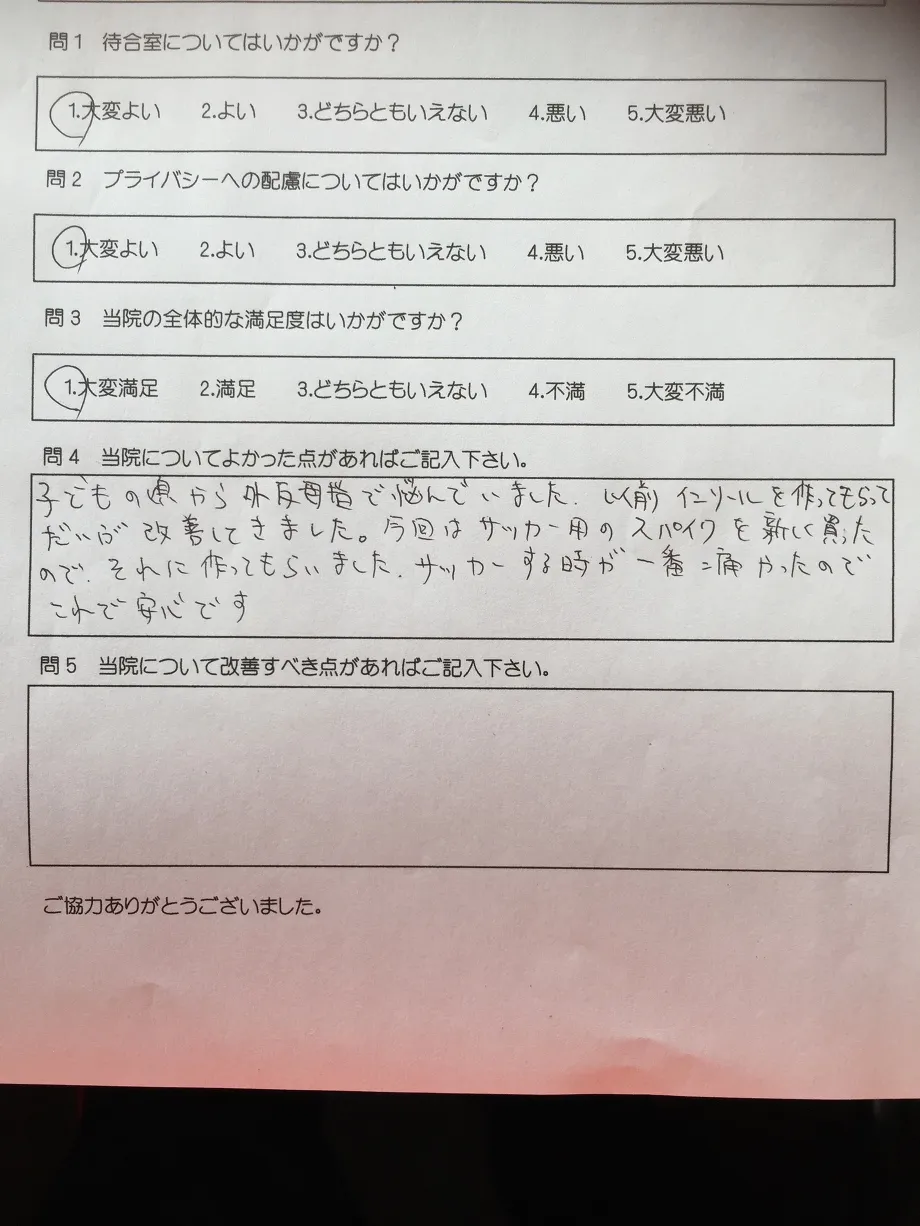 問1 待合室についてはいかがですか？
1.大変よい 2.よい 3.どちらともいえない 4.悪い 5.大変悪い
問2 プライバシーへの配慮についてはいかがですか？
1.大変よい 2.よい 3.どちらともいえない 4.悪い 5.大変悪い
問3 当院の全体的な満足度はいかがですか？
1.大変満足 2.満足 3.どちらともいえない 4.不満 5.大変不満
問4 当院についてよかった点があればご記入下さい。
子どもの頃から外反母指で悩んでいました. 以前インソールを作ってもらって
だいぶ改善してきました。今回はサッカー用のスパイクを新しく買った
ので. それに作ってもらいました. サッカーする時が一番痛かったので
これで安心です
問5 当院について改善すべき点があればご記入下さい。
ご協力ありがとうございました。